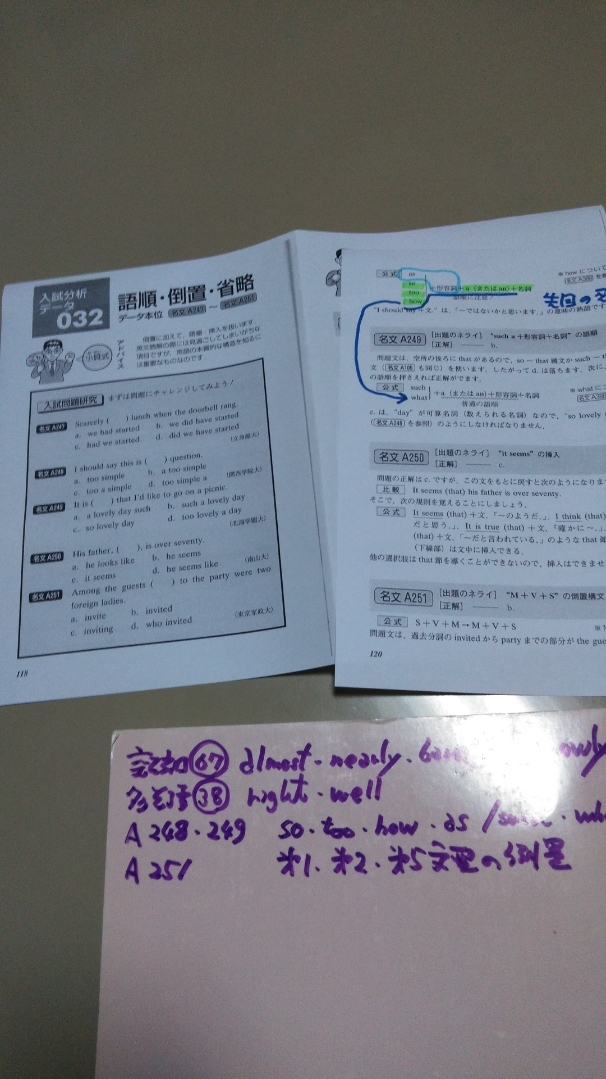 入試分析
データ
032
語順・倒置・省略
データ本位 名文A247 ー 名文A251
小貫式
アドバイス
入試問題研究 まずは問題にチャレンジしてみよう!
名文A247 Scarcely ( ) lunch when the doorbell rang.
a. we had started b. we did have started
c. had we started d. did we have started
名文A248 I should say this is ( ) question.
a. too simple b. a too simple
c. too a simple d. too simple a (関西学院大)
名文A249 It is ( ) that I'd like to go on a picnic.
a. a lovely day such b. such a lovely day
c. so lovely day d. too lovely a day
(北海学園大)
名文A250 His father, ( ), is over seventy.
a. he looks like b. he seems
c. it seems d. he seems like (南山大)
名文A251 Among the guests ( ) to the party were two
foreign ladies.
a. invite b. invited
c. inviting d. who invited (東京家政大)
118
公式 as
so
too
how
+形容詞+a(または an)+名詞
先日の
名文 A249 [出題のネライ] "such a+形容詞+名詞"の語順
[正解] ―― b.
公式 such
what
+a(または an)+形容詞+名詞
普通の語順
c. は、"day" が可算名詞(数えられる名詞)なので、"so lovely
名文 A250 [出題のネライ] "it seems" の挿入
[正解] ―― c.
問題の正解は c. ですが、この文をもとに戻すと次のようになりま
比較 It seems (that) his father is over seventy.
そこで、次の規則を覚えることにしましょう。
公式 It seems (that)+文、「~のようだ」、I think (that)
だと思う。」、It is true (that)+文、「確かに~。」
(that)+文、「~だと言われている。」のような that 節
(下線部)は文中に挿入できる。
他の選択肢は that 節を導くことができないので、挿入はできませ
名文 A251 [出題のネライ] "M+V+S" の倒置構文
[正解] ―― b.
公式 S+V+M→M+V+S
問題文は、過去分詞の invited から party までの部分が the gue
120
67 almost・nearly・
38 right・well
A 248・249 so・too・how・as /
A 251 第1・第2・第5文型の倒置